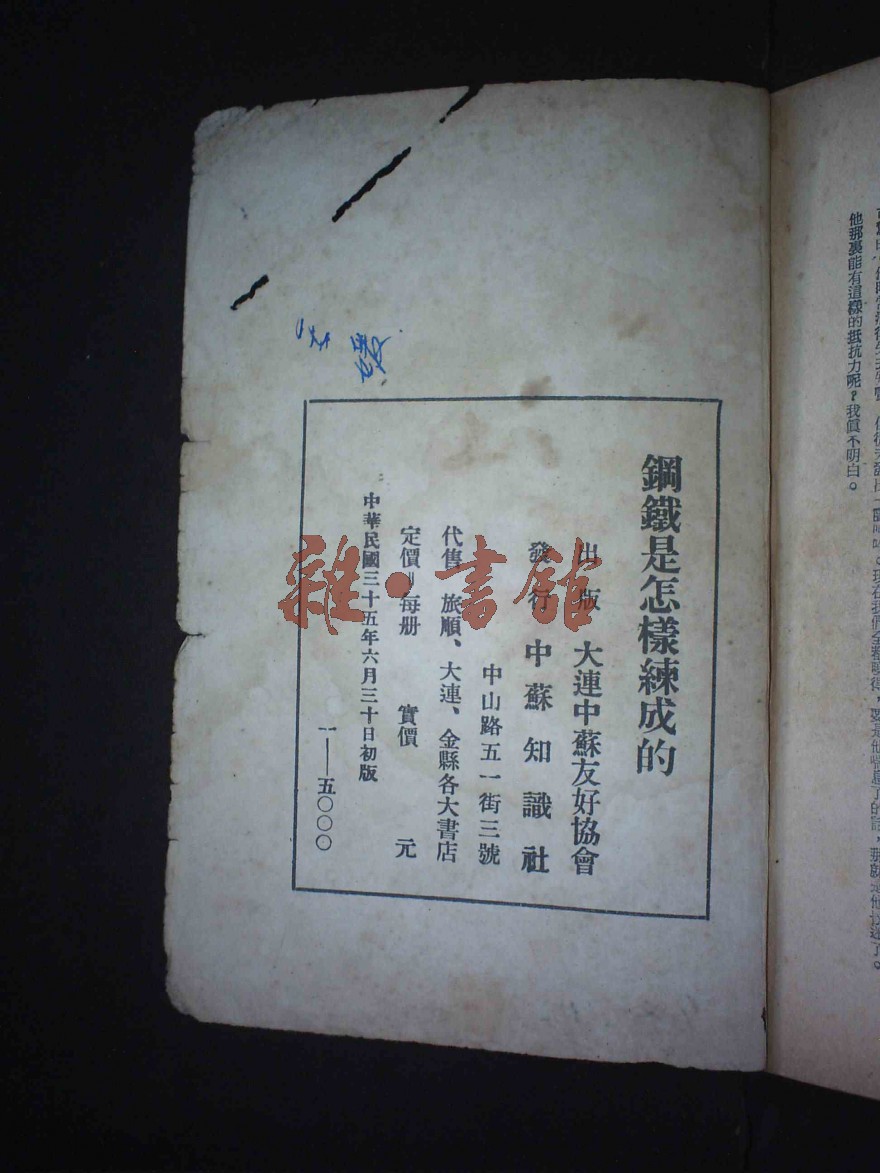 鋼鐵是怎樣練成的
出版 大連中蘇友好協會
發行 中蘇知識社
中山路五一街三號
代售 旅順、大連、金縣各大書店
定價 每册 實價 元
中華民國三十五年六月三十日初版
一——五〇〇〇
雜·書館
他那裏能有這樣的抵抗力呢?我眞不明白。